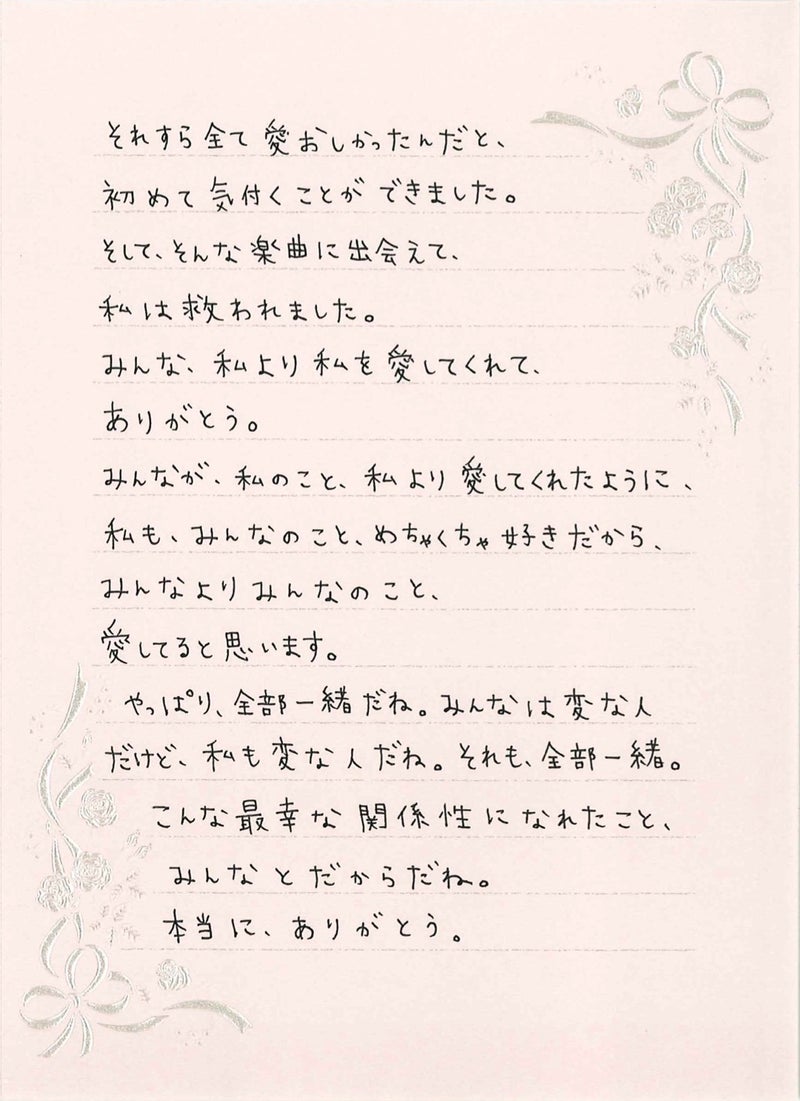 それすら全て愛おしかったんだと、
初めて気付くことができました。
そして、そんな楽曲に出会えて、
私は救われました。
みんな、私より私を愛してくれて、
ありがとう。
みんなが、私のこと、私より愛してくれたように、
私も、みんなのこと、めちゃくちゃ好きだから、
みんなよりみんなのこと、
愛してると思います。
やっぱり、全部一緒だね。みんなは変な人
だけど、私も変な人だね。それも、全部一緒。
こんな最幸な関係性になれたこと、
みんなとだからだね。
本当に、ありがとう。